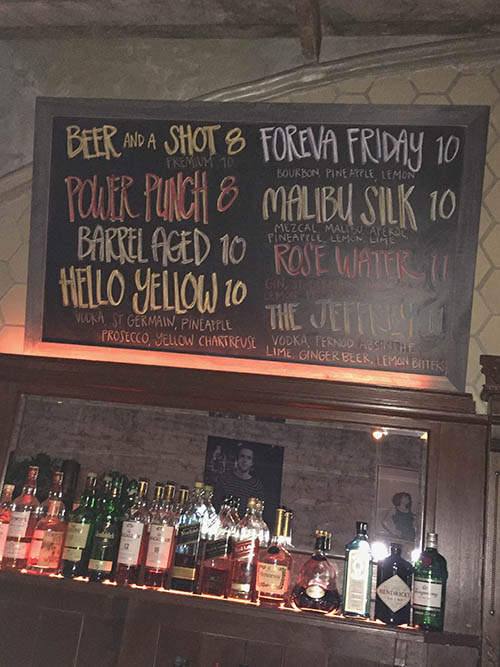 BEER AND A SHOT 8
PREMIUM 10
POWER PUNCH 8
BARREL AGED 10
HELLO YELLOW 10
VODKA, ST GERMAIN, PINEAPPLE
PROSECCO, YELLOW CHARTREUSE
FOREVA FRIDAY 10
BOURBON, PINEAPPLE, LEMON
MALIBU SILK 10
MEZCAL, MALIBU, APEROL,
PINEAPPLE, LEMON, LIME
ROSE WATER 11
GIN, ST GERMAIN
THE JEFFREY
VODKA, PERNOD, ABSINTHE
LIME, GINGER BEER, LEMON BITTERS
HENDRICK'S